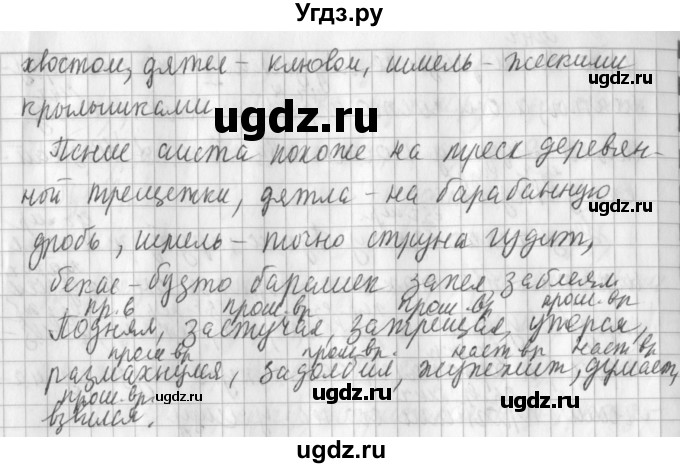 Угдз.ру
хвостом, дятел - клювом, шмель - жескими
ugdz.ru
крылышками
ugdz.ru ugdz.ru
Пение аиста похоже на треск деревян-
ной трещетки, дятла - на барабанную
дробь, шмель - точно струна гудит,
бекас - будто барашек запел, заблеял.
пр. в прош. вр прош. вр прош. вр
Поднял, застучал, затрещал, уперся,
прош. вр прош. вр. наст вр наст вр
размахнулся, задолбил, жужжит, думает,
ugdz.ru ugdz.ru
прош. вр.
взвился.
ugdz.ru